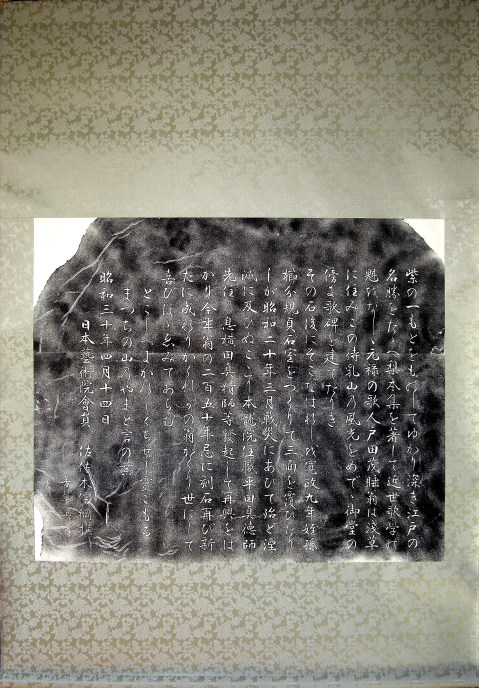 紫の一もとをものしてゆかり深き江戸の
名勝をたゝへ梨本集を著して近世歌学の
魁をなしゝ元禄の歌人戸田茂睡翁は浅草
に住みこの待乳山の風光をめでゝ御堂の
傍に歌碑を建てたりき
その石後にそこなはれしを寛政九年
相分現真石室をつくりて三面を覆ひたり
しが昭和二十年三月戦災にあひて殆ど湮
滅に及びぬこゝに本龍院住職平田真徳師
先住の息横田真精師等発起して再興をは
かり今年翁の二百五十年忌に刻石再び新
たに成れりかくれがの翁かくり世にして
喜びほゝゑみてあらむ
とこしへにかをれくちせじ雲ごもる
まつちの山のやまと言の葉
昭和三十年四月十四日
日本藝術院會員 佐佐木信綱撰